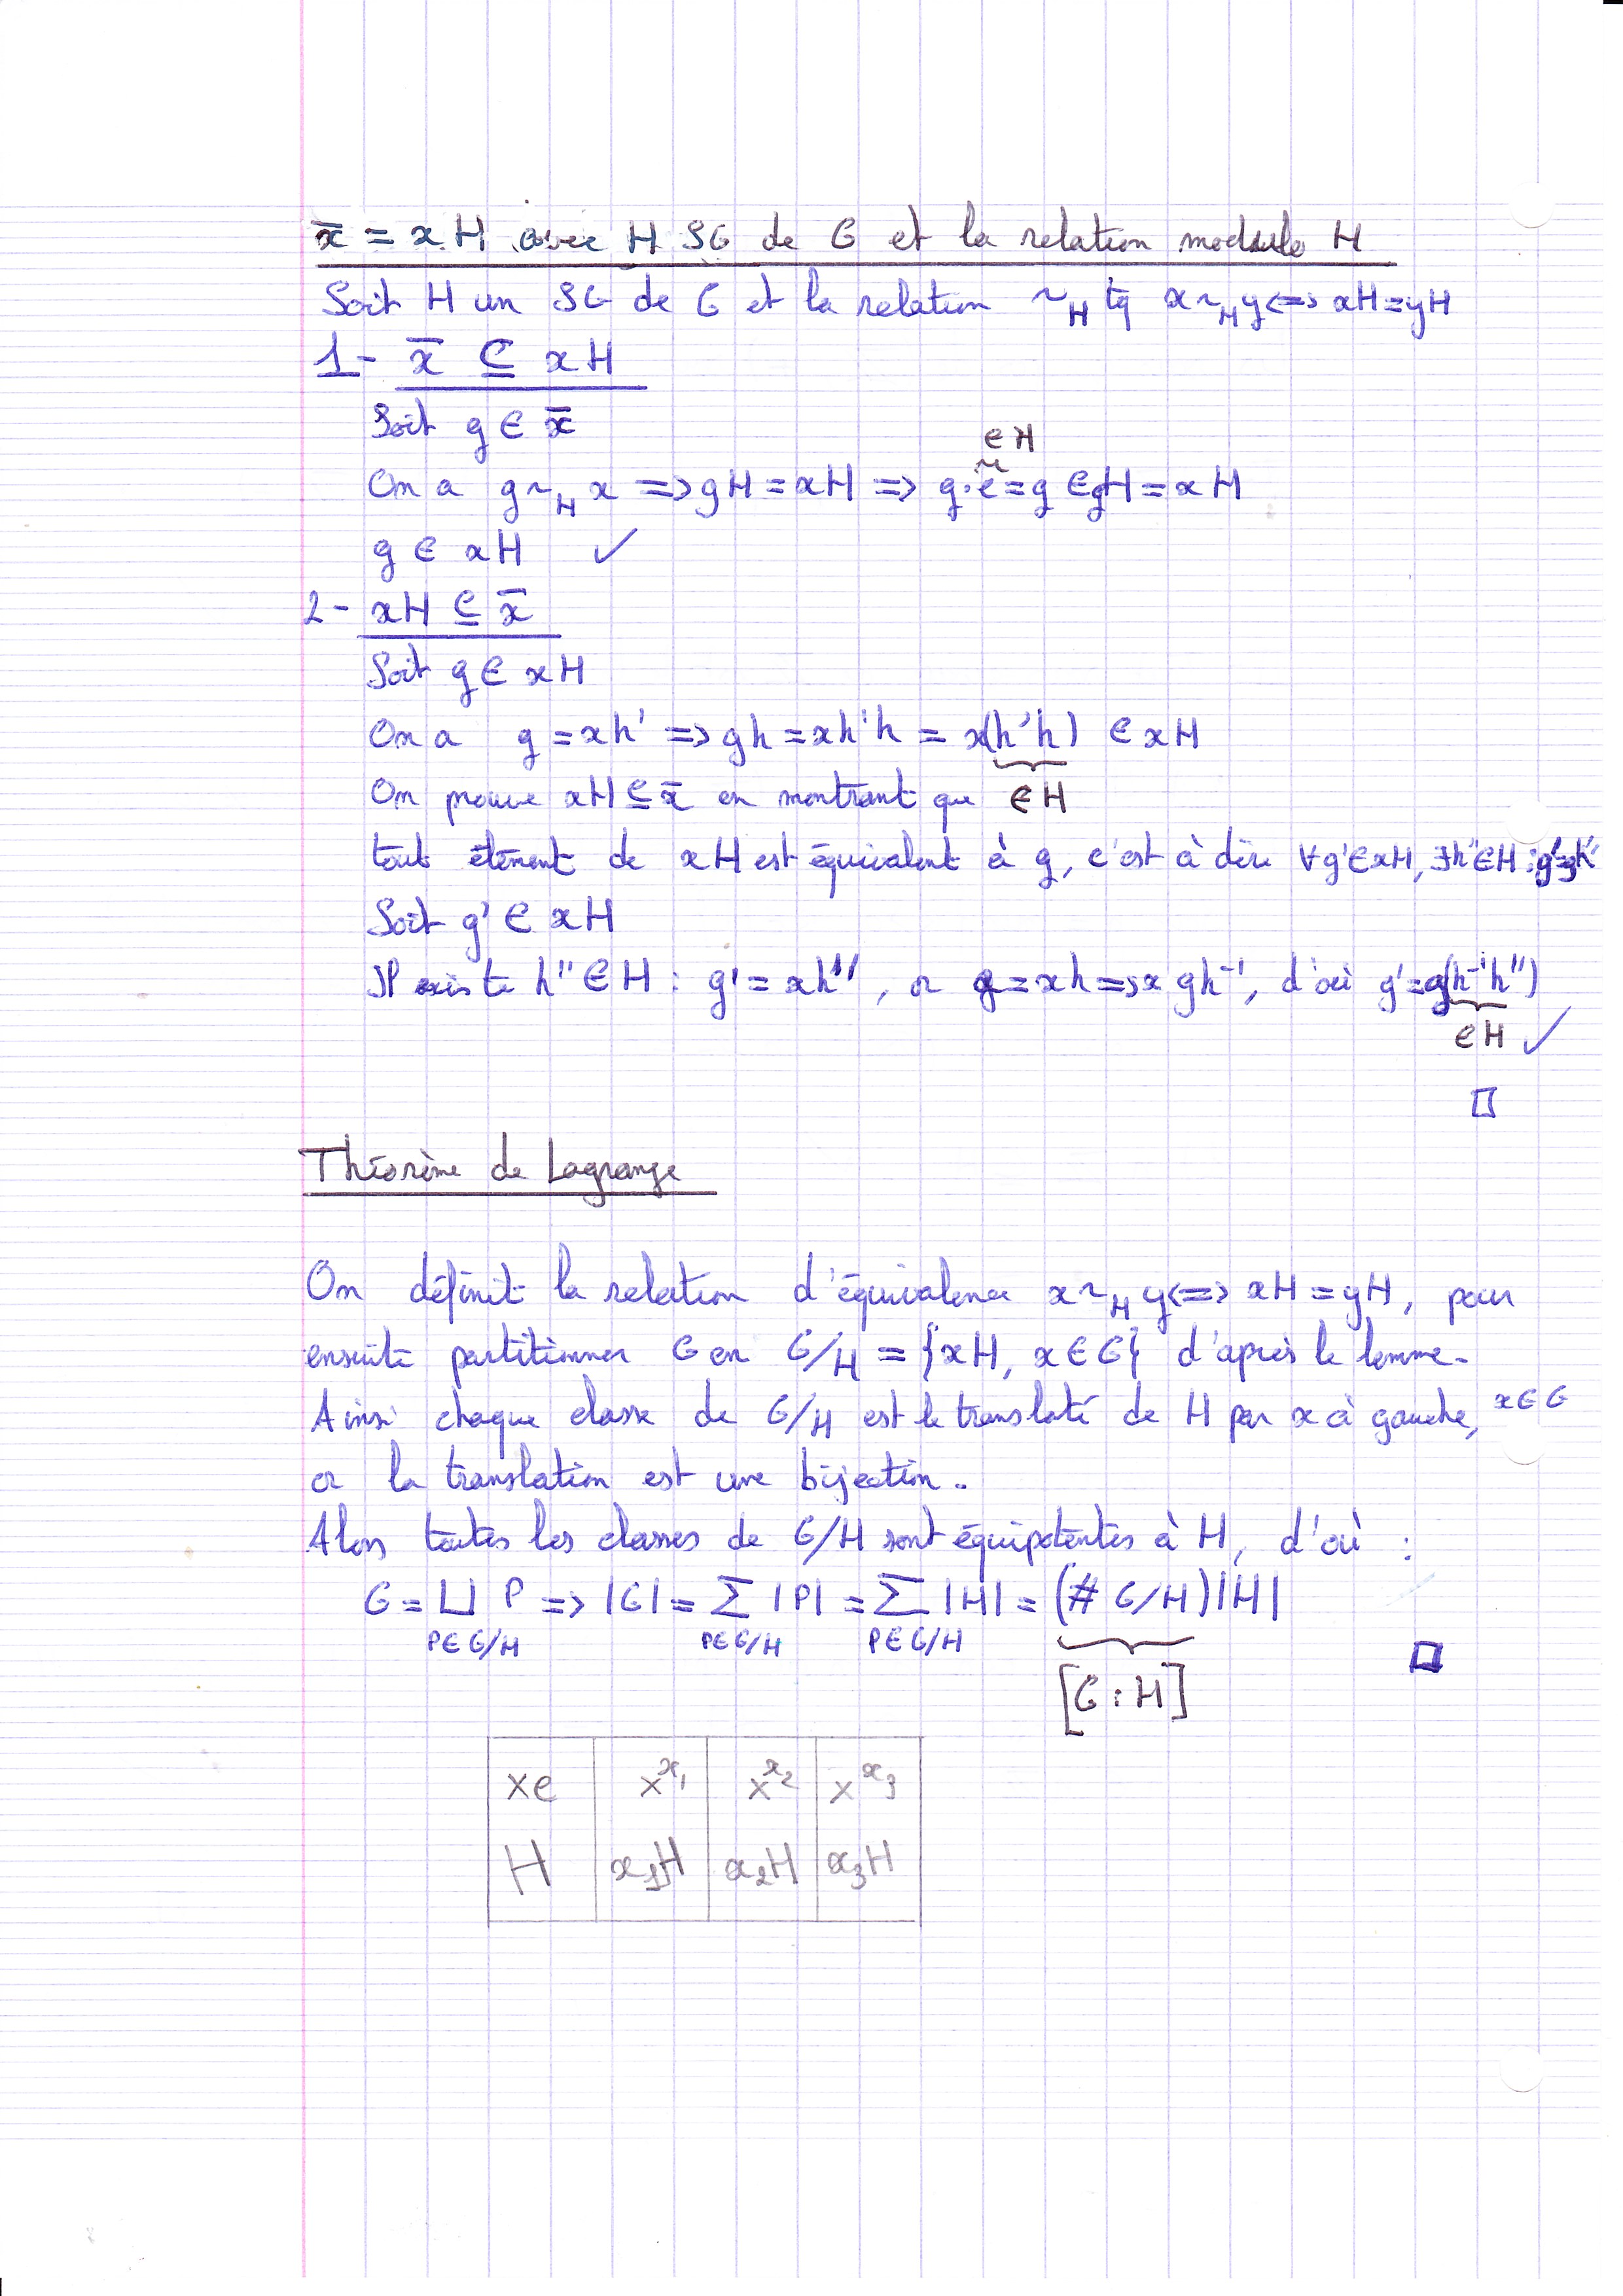 x̄ = xH avec H SG de G et la relation modulo H
Soit H un SG de G et la relation ~_H tq x ~_H y <=> xH = yH
1- x̄ ⊆ xH
Soit g ∈ x̄
∈ H
On a g ~_H x => gH = xH => g·e = g ∈ gH = xH
g ∈ xH ✓
2- xH ⊆ x̄
Soit g ∈ xH
On a g = xh' => gh = xh'h = x(h'h) ∈ xH
On prouve xH ⊆ x̄ en montrant que ∈ H
tout élément de xH est équivalent à g, c'est à dire ∀g' ∈ xH, ∃h'' ∈ H :
Soit g' ∈ xH
Il existe h'' ∈ H : g' = xh'', or g = xh => x gh⁻¹, d'où g' = g(h⁻¹h'')
∈ H ✓
□
Théorème de Lagrange
On définit la relation d'équivalence x ~_H y <=> xH = yH, pour
ensuite partitionner G en G/H = {xH, x ∈ G} d'après le lemme.
Ainsi chaque classe de G/H est le translaté de H par x à gauche, x ∈ G
or la translation est une bijection.
Alors toutes les classes de G/H sont équipotentes à H, d'où :
G = ⊔ P => |G| = Σ |P| = Σ |H| = (# G/H)|H|
P∈G/H P∈G/H P∈G/H
□
[G : H]
×e ×x₁ ×x₂ ×x₃
H x₁H x₂H x₃H